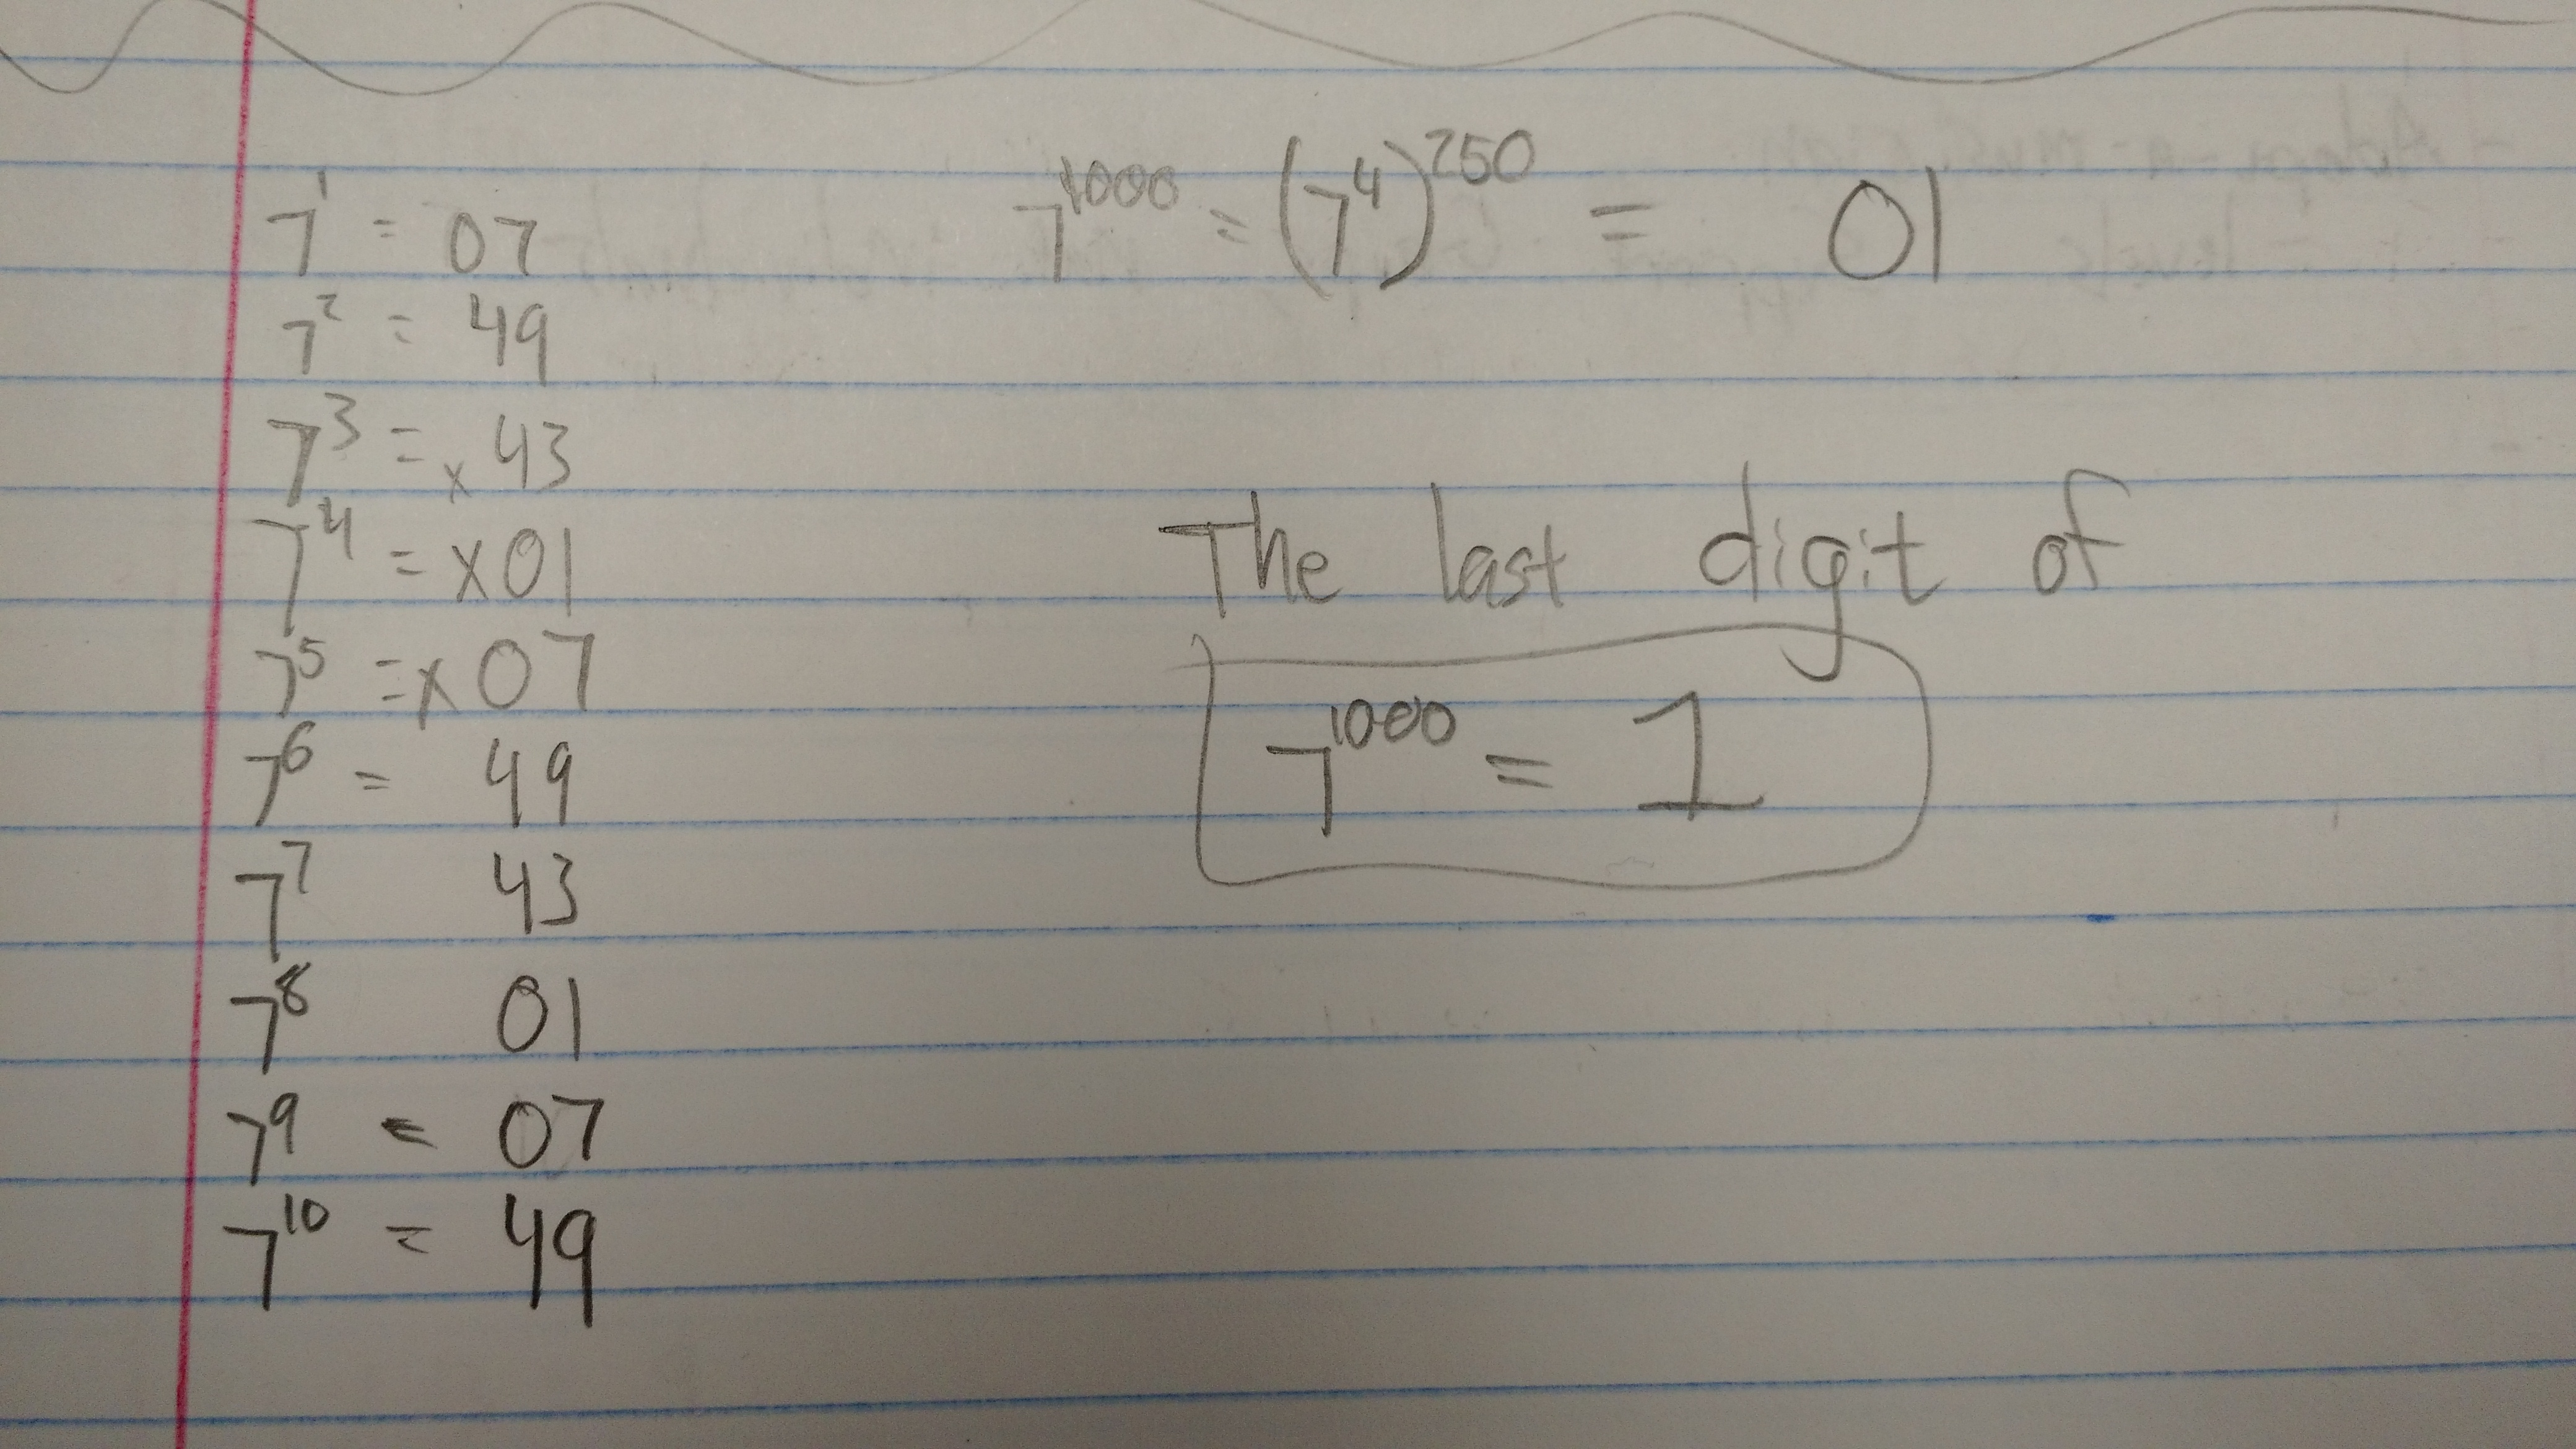 7^1 = 07
7^2 = 49
7^3 = x 43
7^4 = x01
7^5 = x07
7^6 = 49
7^7 43
7^8 01
7^9 = 07
7^10 = 49
7^1000 = (7^4)^250 = 01
The last digit of
7^1000 = 1